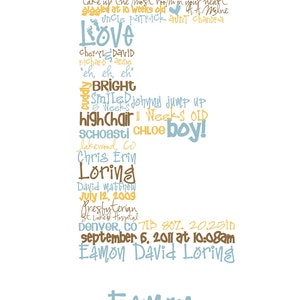 take up the most room in your heart
giggled at 10 weeks old
uncle patrick aunt chandra
Love
cheryl david
richard amy
"eh, eh, eh"
cuddly BRIGHT
SMILED johnny jump up
5 weeks
highchair 11 WEEKS OLD
SCHOAST! CHLOE boy!
lakewood, CO
Chris Erin
Loring
David matthew
JULY 12, 2009
Presbyterian
St. Lukes Hospital
DENVER, CO 7lb 8oz, 20.25in
september 6, 2011 at 10:08am
Eamon David Loring